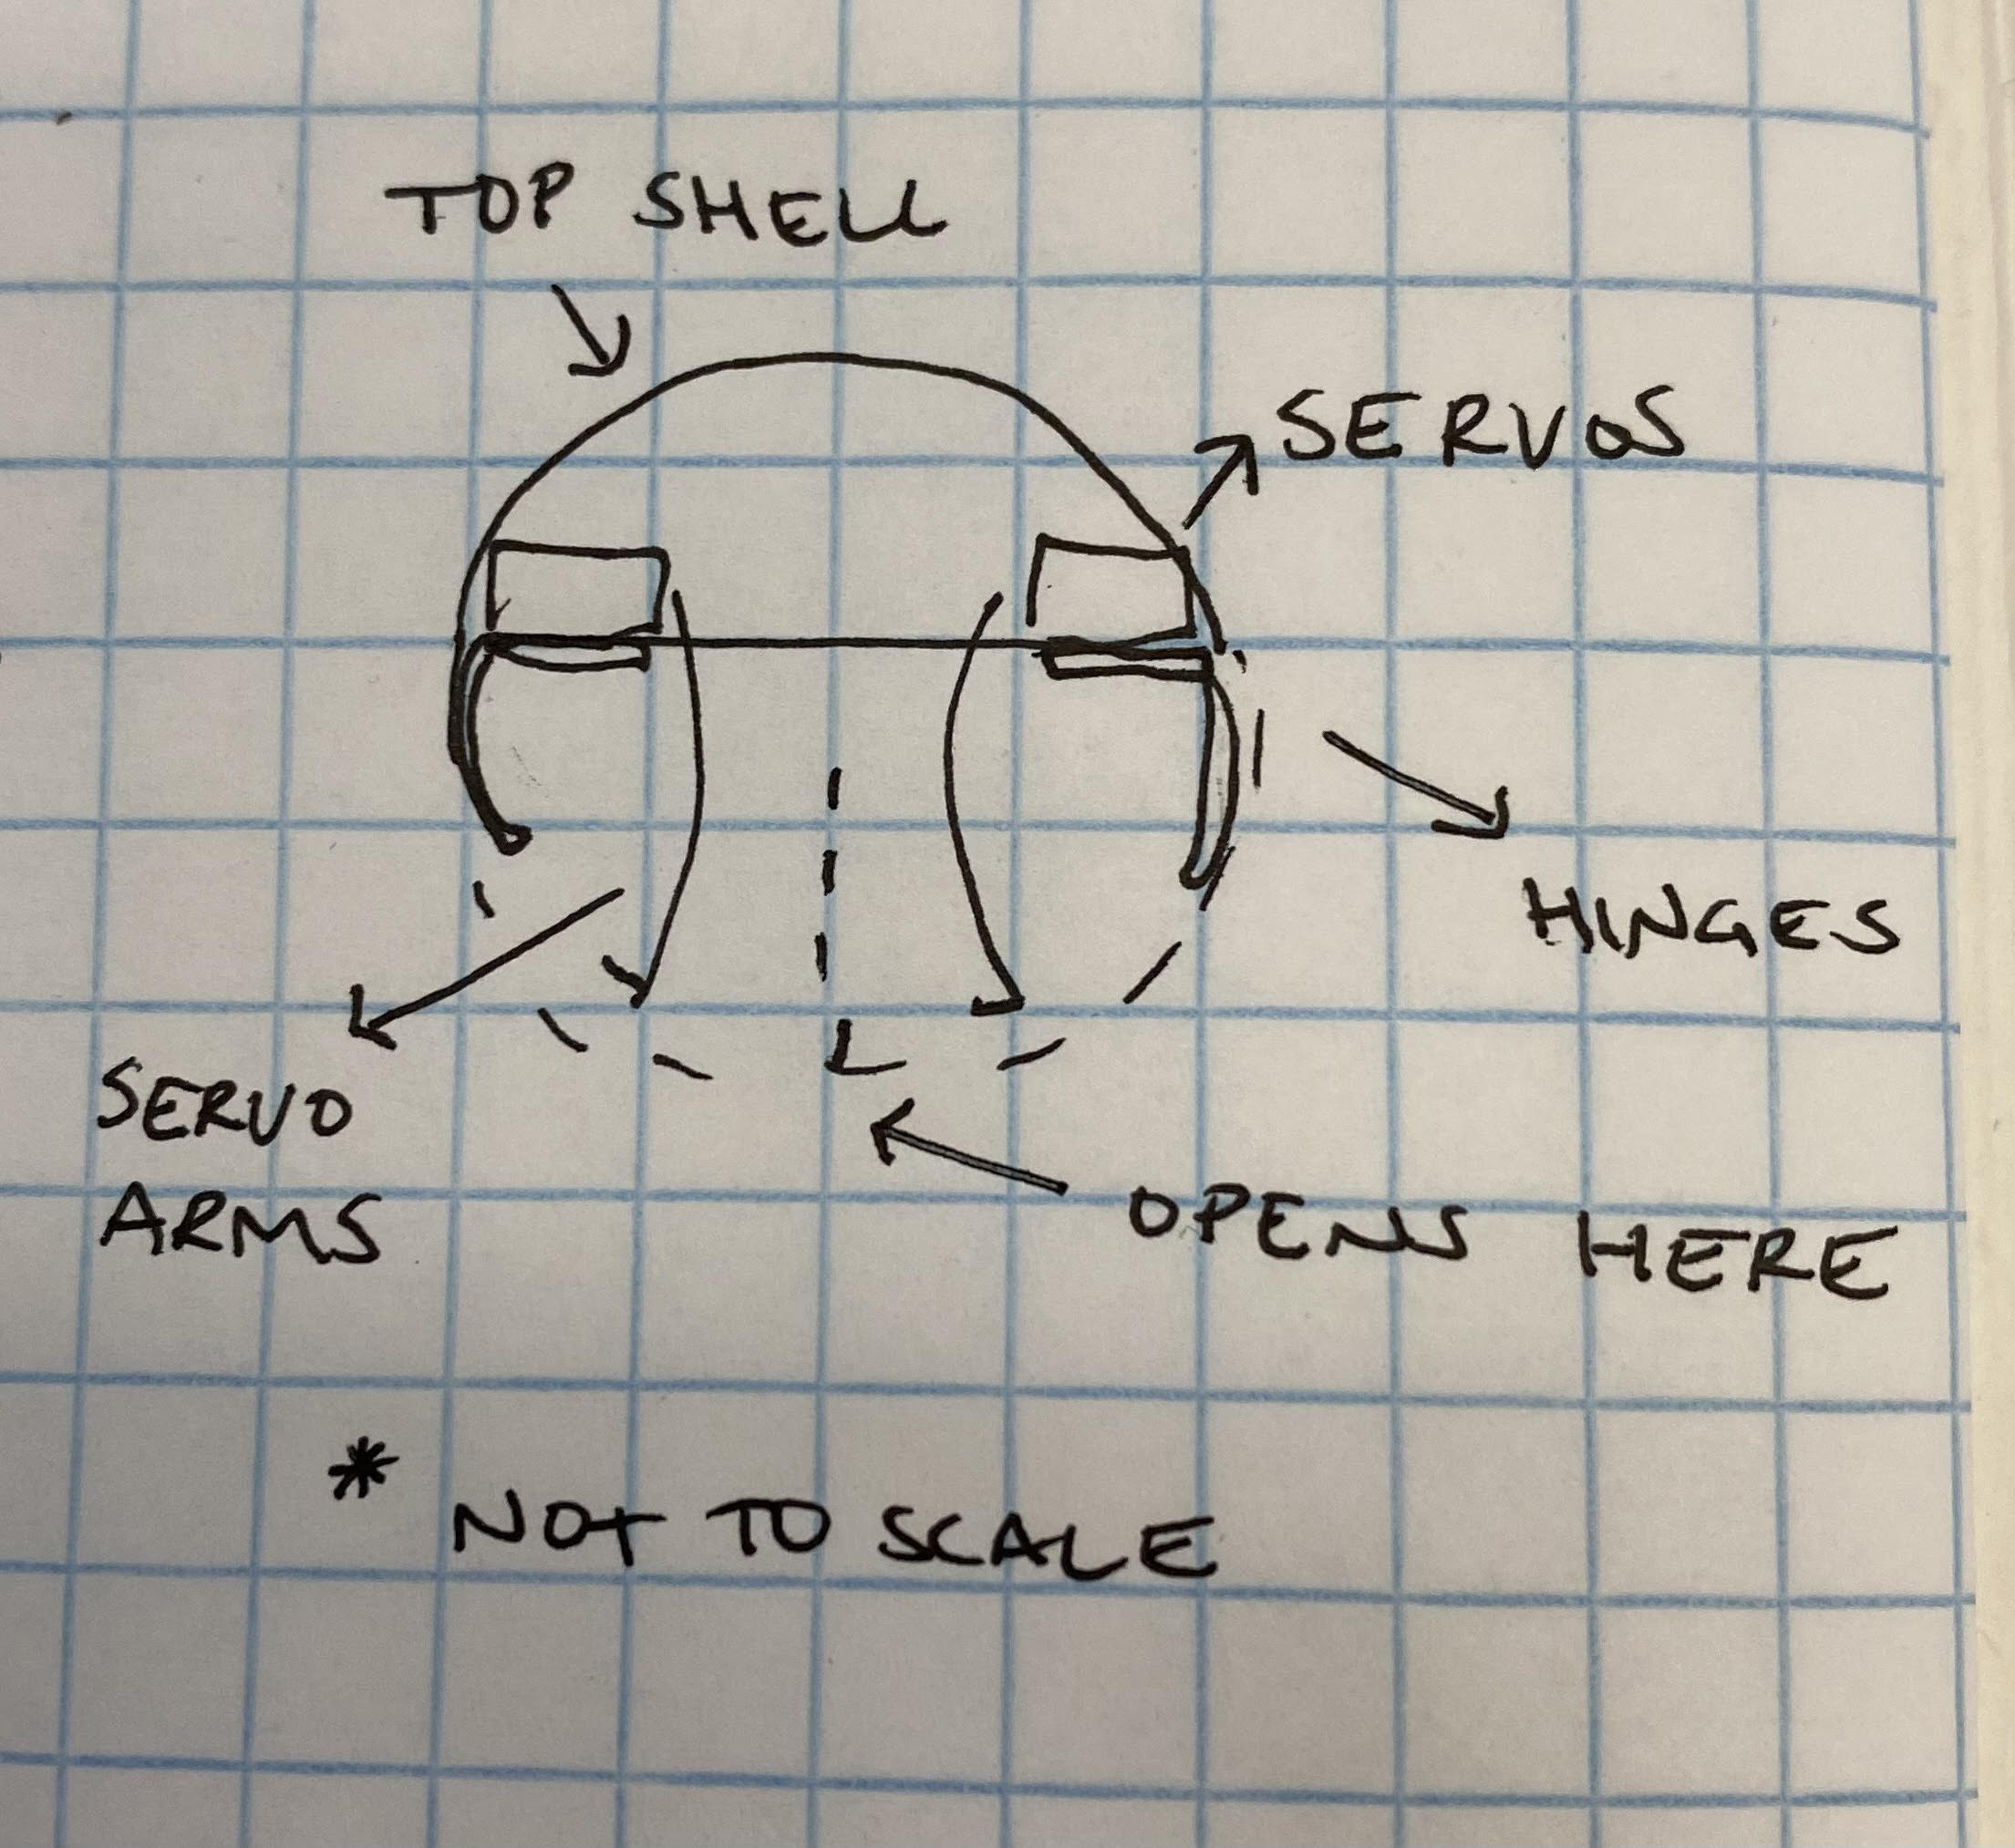 TOP SHELL
SERVOS
HINGES
SERVO
ARMS
OPENS HERE
* NOT TO SCALE